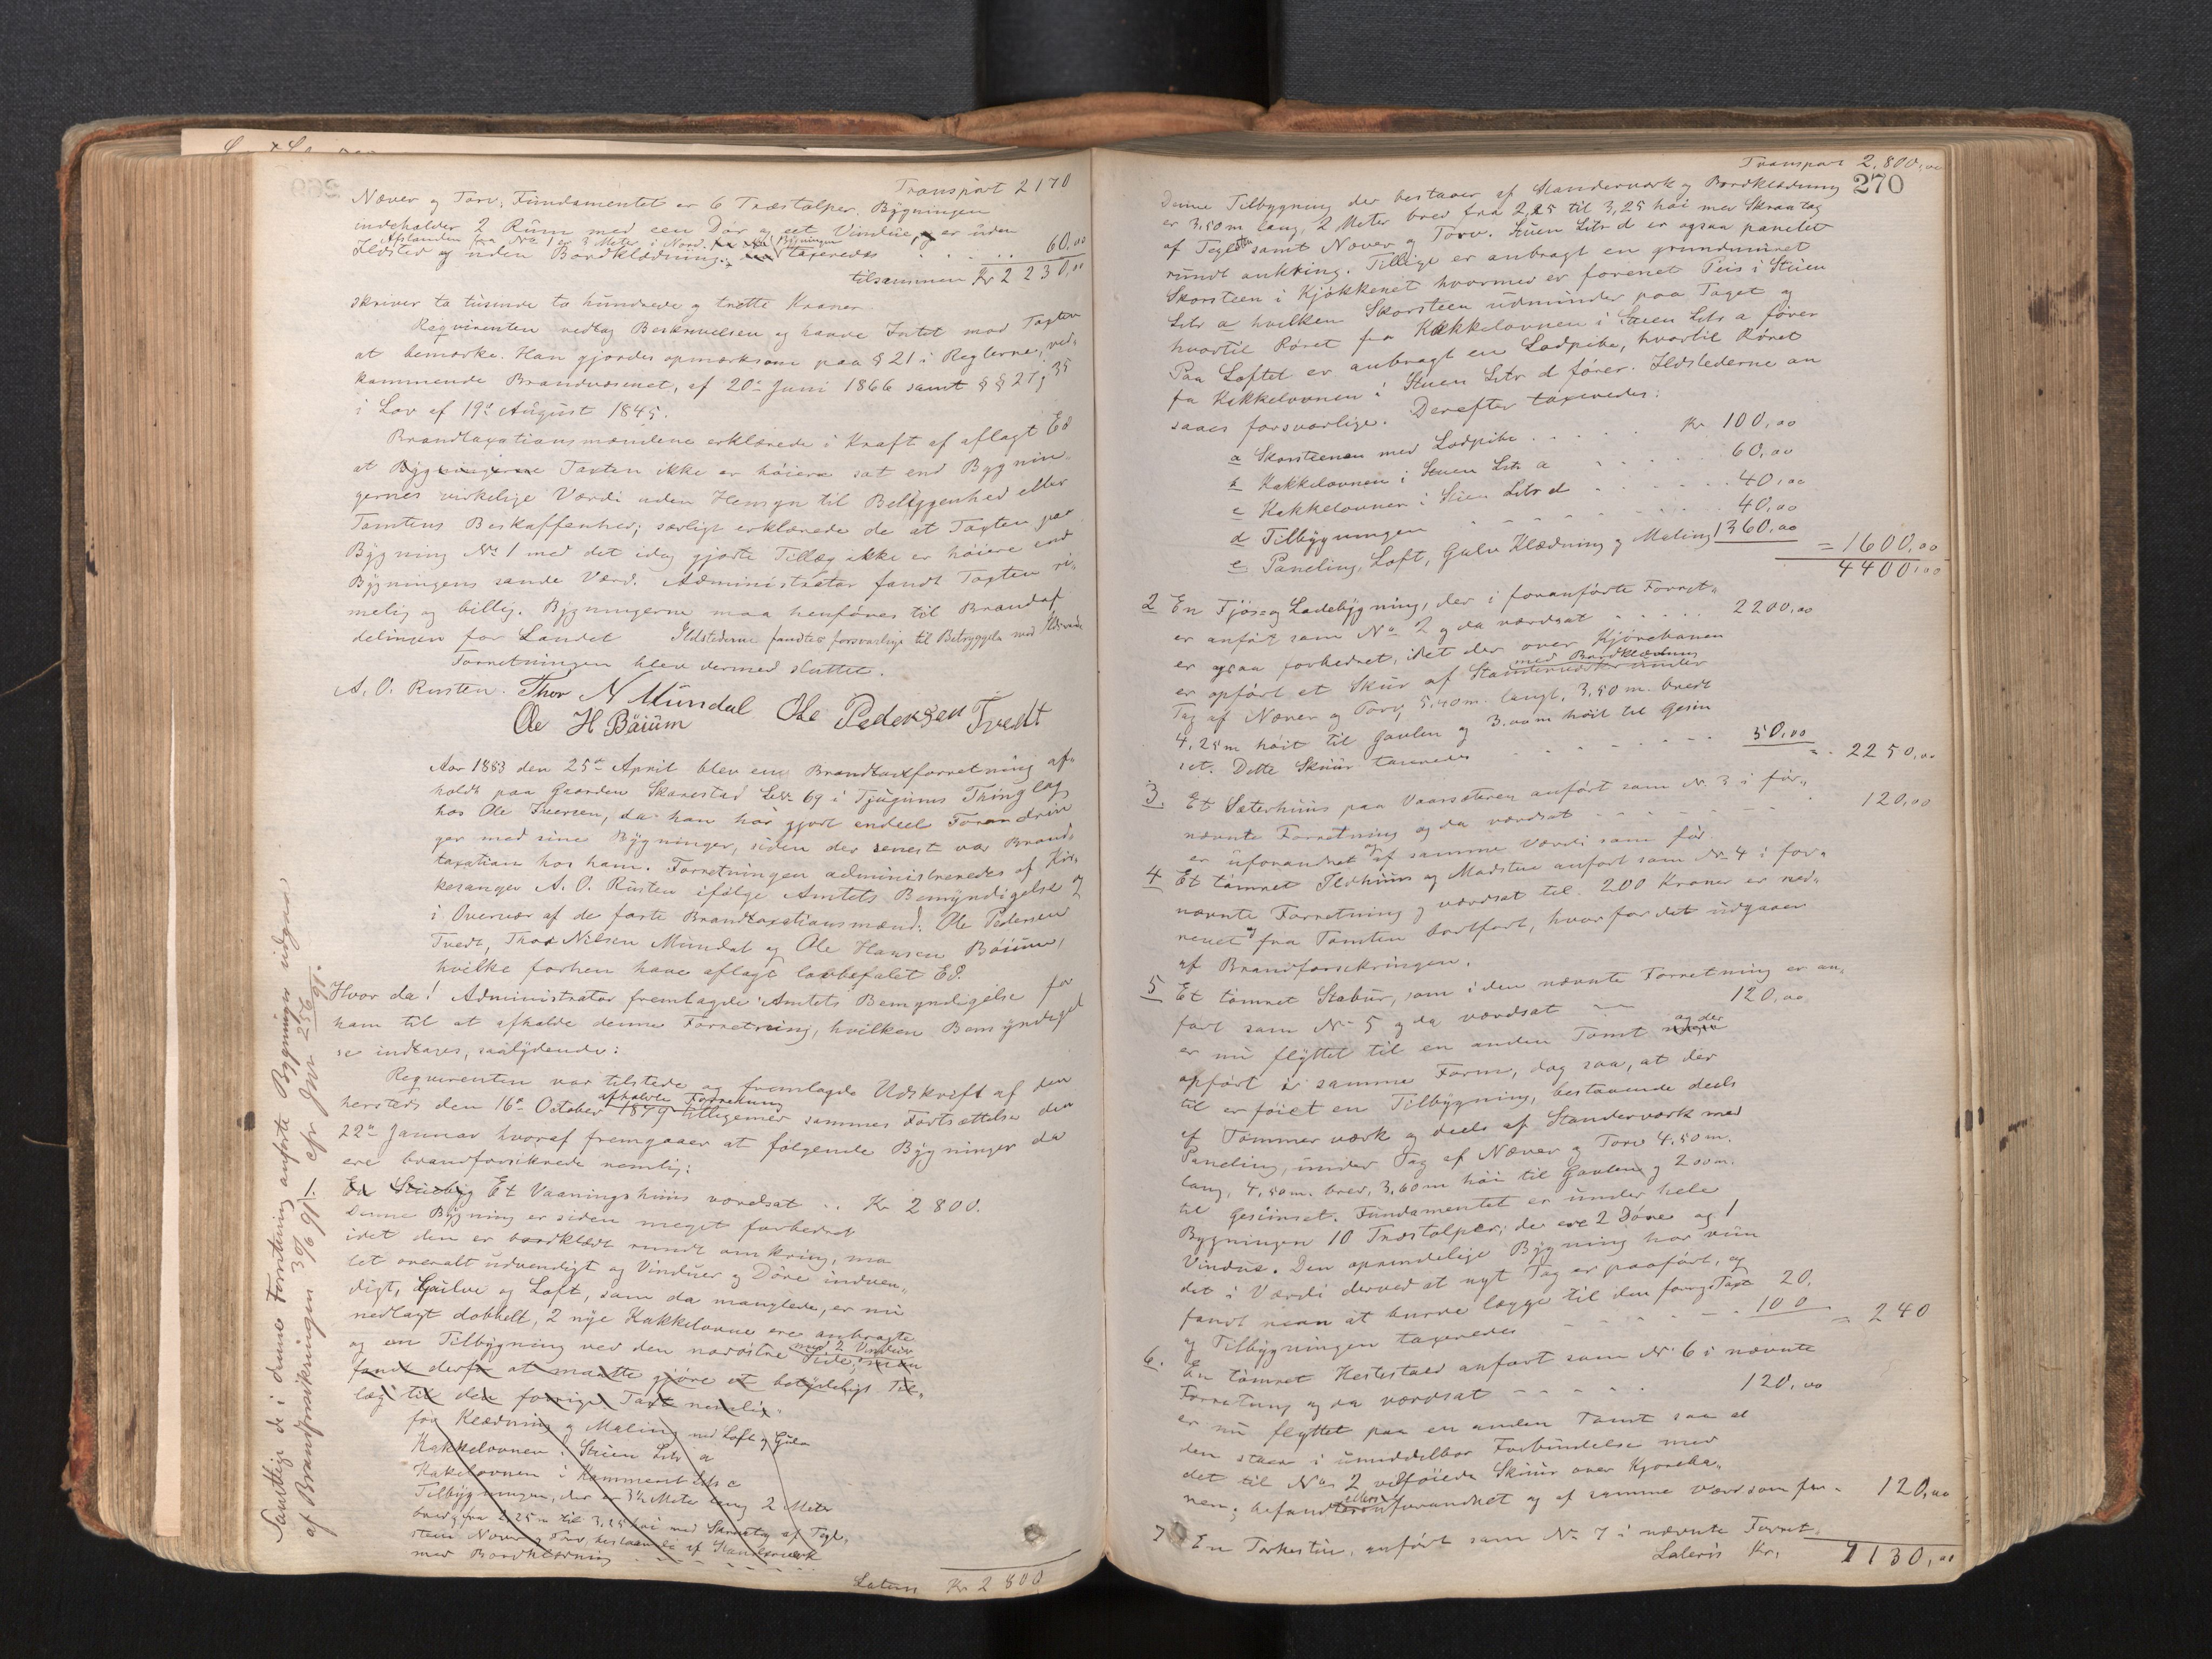 Transport 2170
Næver og Torv, Fundamentet er 6 Træstolper. Bygningen
indeholder 2 Rum med een Dør og eet Vindue, og er uden
Afstanden fra No 1 er 3 Meter i Nord. Bygningen
Ildsted og uden Bordklædning. taxeredes . . . . 60,00
tilsammen Kr 2230,00
skriver to tusinde to hundrede og trette Kroner.
Reqvirenten vedtog Beskrivelsen og havde Intet mod Taxten
at bemærke. Han gjordes opmærksom paa § 21 i Reglerne, ved-
kommende Brandvæsenet, af 20de Juni 1866 samt §§ 27 og 35
i Lov af 19de August 1845.
Brandtaxationsmændene erklærede i Kraft af aflagt Ed
at Bygningerne Taxten ikke er høiere sat end Bygnin-
gernes virkelige Værdi uden Hensyn til Beliggenhed eller
Tomtens Beskaffenhed; særligt erklærede de at Taxten paa
Bygning No 1 med det idag gjorte Tillæg ikke er høiere end
Bygningens sande Værd. Administrator fandt Taxten ri-
melig og billig. Bygningerne maa henføres til Brandaf
delingen for Landet Ildstederne fandtes forsvarlige til Betryggelse mod Ildsvaade
Forretningen blev dermed sluttet.
A. O. Rusten. Thor N Mundal Ole Pedersen Tvedt
Ole H. Böium
Aar 1883 den 25de April blev en Brandtaxtforretning af-
holdt paa Gaarden Skarestad Lb.No 69 i Tjugums Thinglag
hos Ole Iversen, da han har gjort endeel Forandrin
ger med sine Bygninger, siden der senest var Brand-
taxation hos ham. Forretningen administreredes af Kir-
kesanger A. O. Rusten ifølge Amtets Bemyndigelse og
i Overvær af de faste Brandtaxationsmænd: Ole Pedersen
Tvedt, Thor Nilsen Mundal og Ole Hansen Böium,
hvilke forhen have aflagt lovbefalet Ed.
Hvor da! Administrator fremlagde Amtets Bemyndigelse for
ham til at afholde denne Forretning, hvilken Bemyndigel
se indtages, saalydende:
Reqvirenten var tilstede og fremlagde Udskrift af den
afholdte Forretning
hersteds den 16de October 1879 tilligemed sammes Fortsættelse den
22de Januar hvoraf fremgaaer at følgende Bygninger da
ere brandforsikrede nemlig:
Et Vaaningshuus værdsat . . Kr 2800.
Denne Bygning er siden meget forbedret
idet den er bordklædt rundt omkring, ma
let overalt udvendigt og Vinduer og Døre indven-
digt, Gulve og Loft, som da manglede, er nu
nedlagt dobbelt, 2 nye Kakkelovne ere anbragte
og en Tilbygning ved den nordøstre Side; med 2 Vinduer man
fandt derfor at maatte gjøre et betydeligt Til-
læg til den forrige Taxt nemlig:
for Klædning og Maling med Loft og Gulv
Kakkelovnen i Stuen Litr a
Kakelovnen i Kammeret Litr c
Tilbygningen, der er 3½ Meter lang 2 Meter
bred og fra 2,25 m til 3,25 høi med Skraatag af Tegl-
steen Næver og Torv, bestaaende af Standerværk
med Bordklædning - - - - -
Lateris Kr 2800
Samtlige de i denne Forretning anførte Bygninger udgaaet
af Brandforsikringen 30/6 91. cfr Jnr 256/91.
Transport 2.800,00
270
Denne Tilbygning der bestaaer af Standerværk og Bordklædning
er 3,50 m lang, 2 Meter bred fra 2,25 til 3,25 høi med Skraatag
af Teglsten samt Næver og Torv. Stuen Litr d er ogsaa panelet
rundt omkring. Tillige er anbragt en grundmuret
Skorsteen i Kjøkkenet hvormed er forenet Peis i Stuen
Litr a hvilken Skorsteen udmunder paa Taget og
hvortil Røret fra Kakkelovnen i Stuen Litr a fører
Paa Loftet er anbragt en Lodpibe, hvortil Røret
fra Kakkelovnen i Stuen Litr d fører. Ildstederne an
saaes forsvarlige. Derefter taxeredes:
a Skorsteenen med Lodpibe . . . . . Kr 100,00
b Kakkelovnen i Stuen Litr a . . . . 60,00
c Kakkelovnen i Stuen Litr d . . . . 40,00
d Tilbygningen - - - - - 40,00
e Paneling, Loft, Gulv Klædning og Maling 1360,00 = 1600,00
4400,00
2 En Fjøs og Ladebygning, der i foranførte Forret-
er anført som No 2 og da værdsat . . . . 2200,00
er ogsaa forbedret, idet der over Kjørebanen
er opført et Skur af Standerværk med Bordklædning under
Tag af Næver og Torv, 5,40 m. langt, 3,50 m. bredt
4,25 m høit til Gavlen og 3.00 m høit til Gesim
set. Dette Skuur taxeredes - - - - - 50,00 = 2250,00
3. Et Sæterhuus paa Vaarsæteren anført som Nr 3 i før-
nævnte Forretning og da værdsat - - - 120,00
er uforandret og af samme Værdi som før
4 Et tømret Ildhuus og Madstue anført som No 4 i for-
nævnte Forretning og værdsat til 200 Kroner er ned-
revet og fra Tomten bortført, hvorfor det udgaaer
af Brandforsikringen.
5 Et tømret Stabur, som i den nævnte Forretning er an-
ført som No 5 og da værdsat 120,00
er nu flyttet til en anden Tomt og der
opført i samme Form, dog saa, at der
til er føiet en Tilbygning, bestaaende deels
af Tømmerværk og deels af Standerværk med
Paneling, under Tag af Næver og Torv 4,50 m.
lang, 4,50 m. bred, 3,60 m høi til Gavlen og 2.00 m.
til Gesimset. Fundamentet er under hele
Bygningen 10 Træstolper; der ere 2 Døre og 1
Vindue. Den oprindelige Bygning har vun
det i Værdi derved at nyt Tag er paaført, og
fandt man at burde lægge til den forrige Taxt 20.
og Tilbygningen taxeredes - - - - - 100 = 240
6. En tømret Hestestald anført som Nr 6 i nævnte
Forretning og da værdsat - - - - 120,00
er nu flyttet paa en anden Tomt saa at
den staar i umiddelbar Forbindelse med
det til No 2 vedføiede Skuur over Kjøreba-
nen; befandtes ellers uforandret og af samme Værd som før - 120,00
7 En Tørkestue, anført som No 7 i nævnte Forret-
Lateris Kr. 7130,00